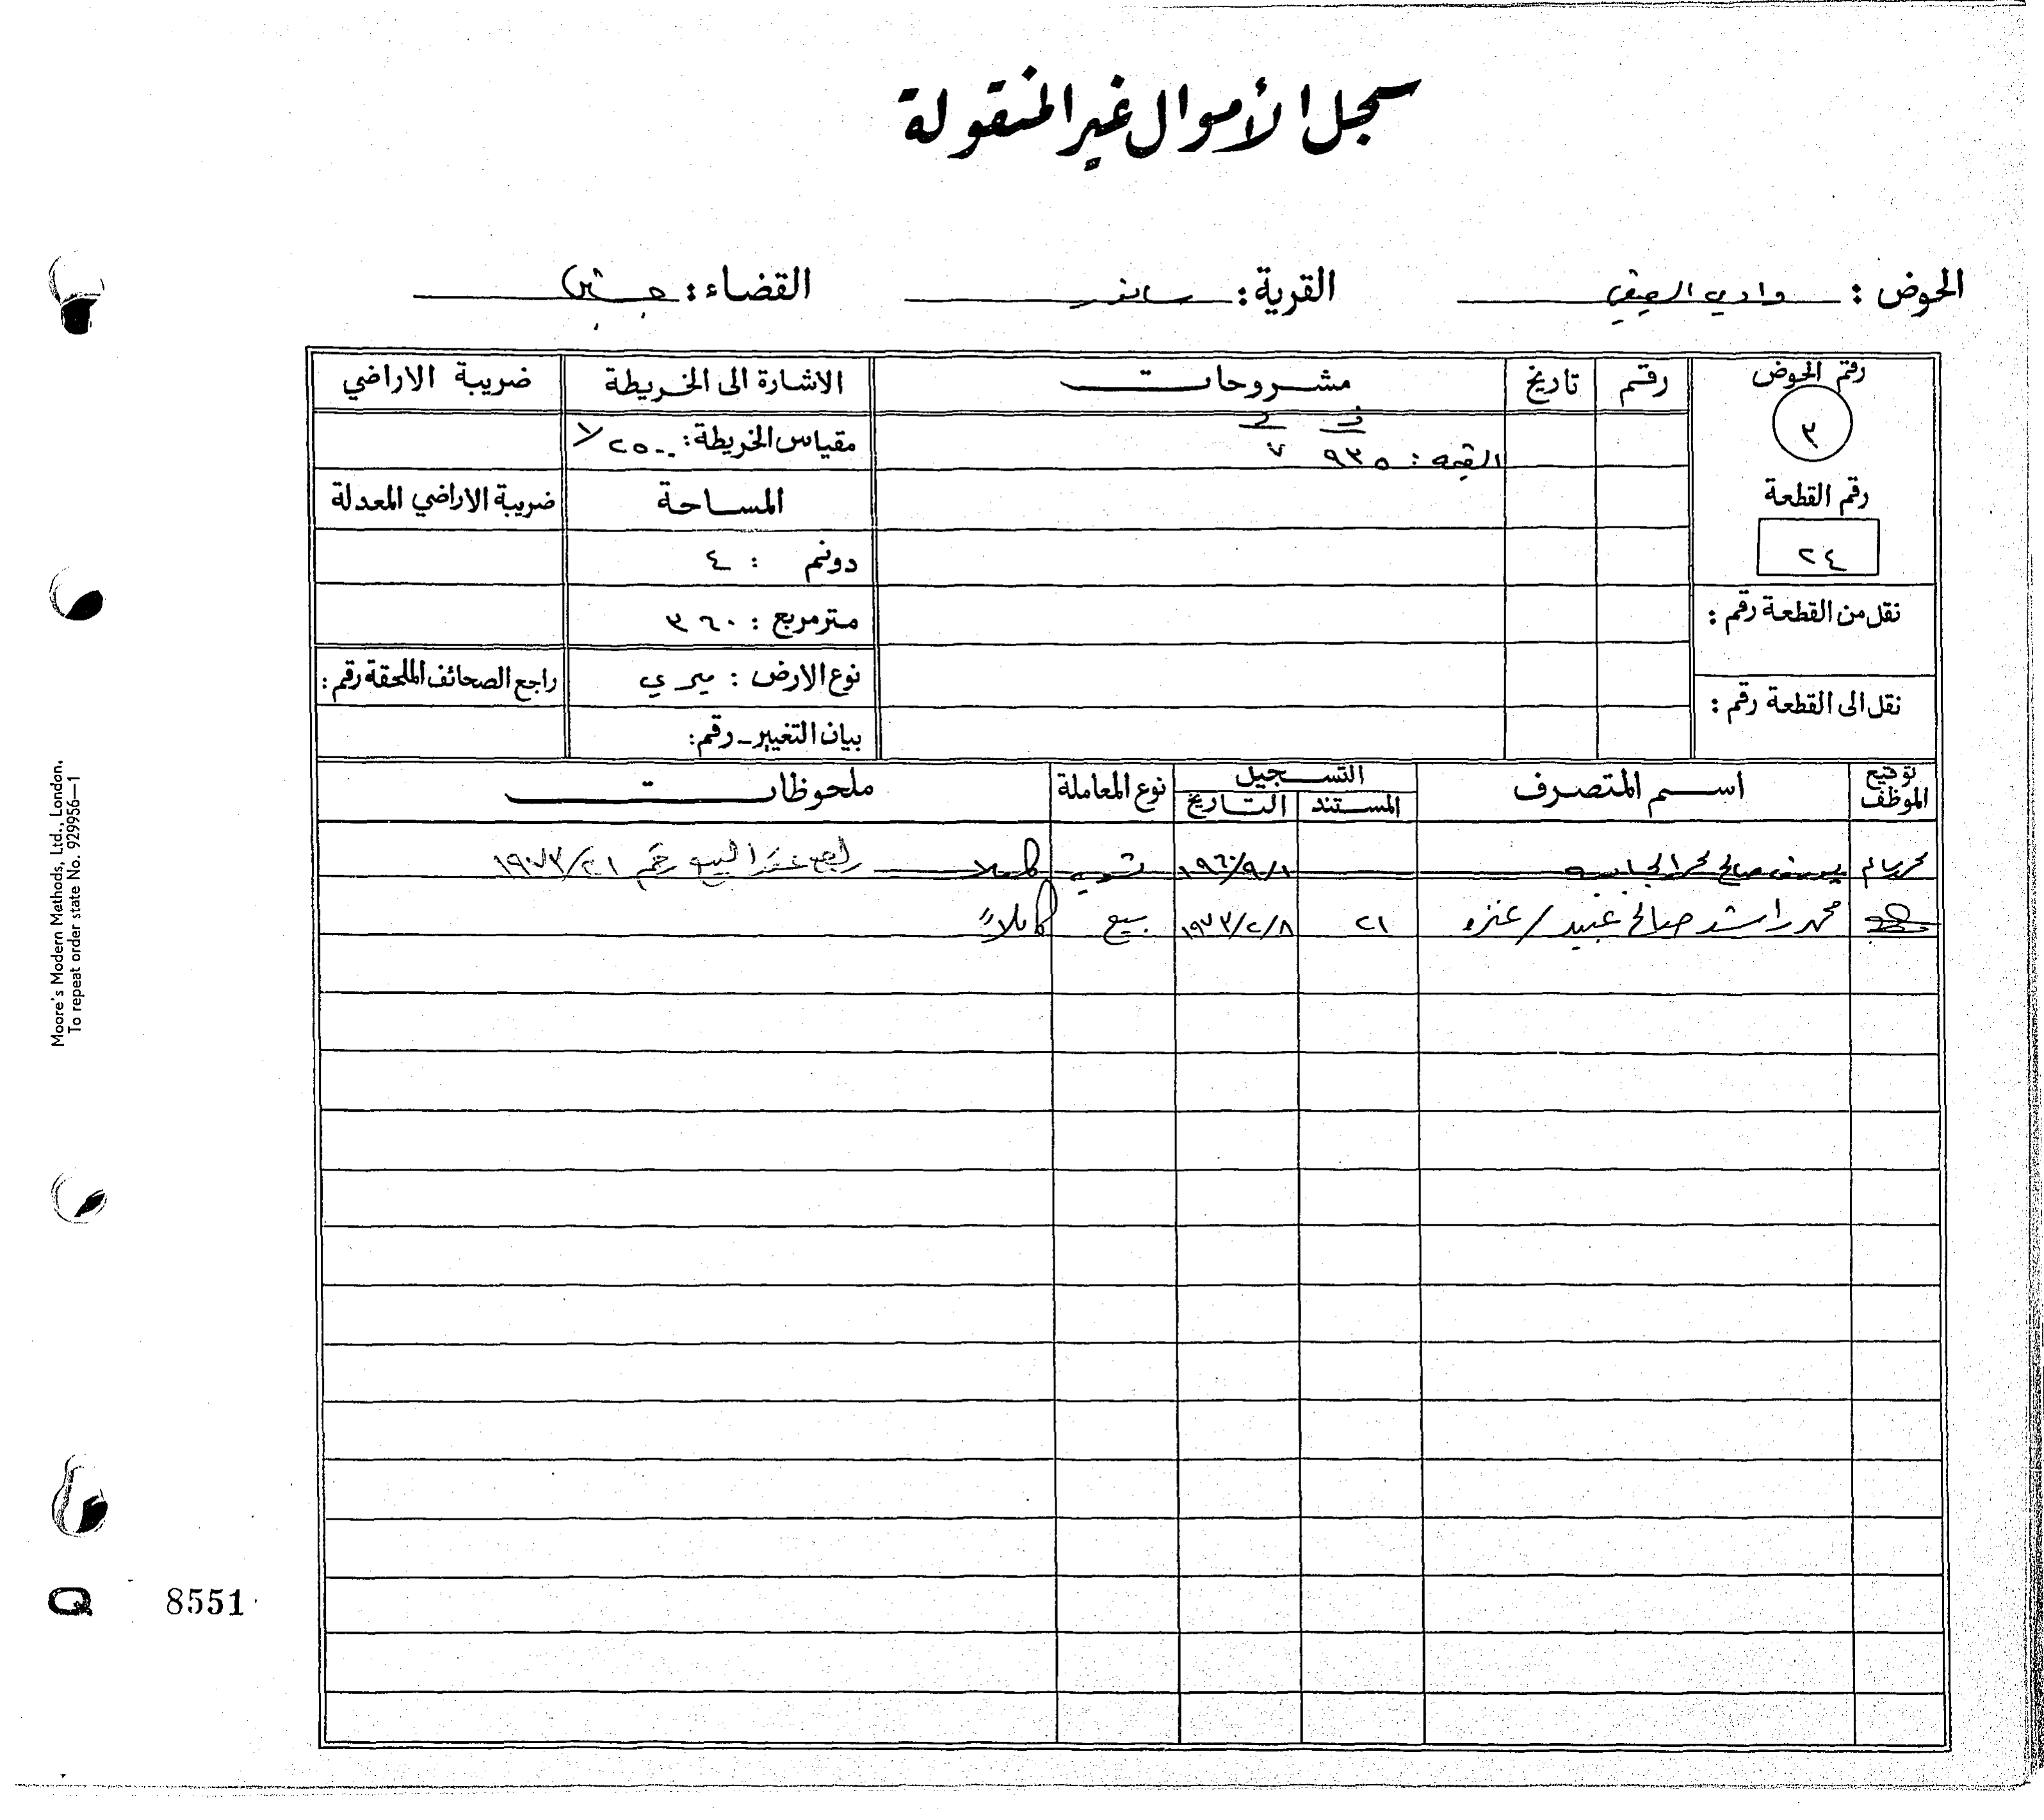 سجل الأموال غير المنقولة
الحوض : وادي القرية : سانور القضاء : جنين
رقم الحوض رقم تاريخ مشروحات الاشارة الى الخريطة ضريبة الاراضي
٣
ف د
القيمه : ٩٣٥ ٧
مقياس الخريطة : ١/٢٥٠٠
رقم القطعة
٢٤
المساحة
ضريبة الاراضي المعدلة
دونم : ٤
نقل من القطعة رقم :
متر مربع : ٣٦٠
نوع الارض : ميري
راجع الصحائف الملحقة رقم :
نقل الى القطعة رقم :
بيان التغيير - رقم :
توقيع الموظف اسم المتصرف التسجيل نوع المعاملة ملحوظات
المستند التاريخ
يوسف صالح ١٩٦٠/٩/١ تسويه كاملا راجع عقد البيع رقم ١٩٧٣/٢١
محمد راشد صالح عبيد / عنزه ٢١ ١٩٧٣/٢/٨ بيع كاملاً
Moore's Modern Methods, Ltd., London.
To repeat order state No. 929956—1
Q 8551